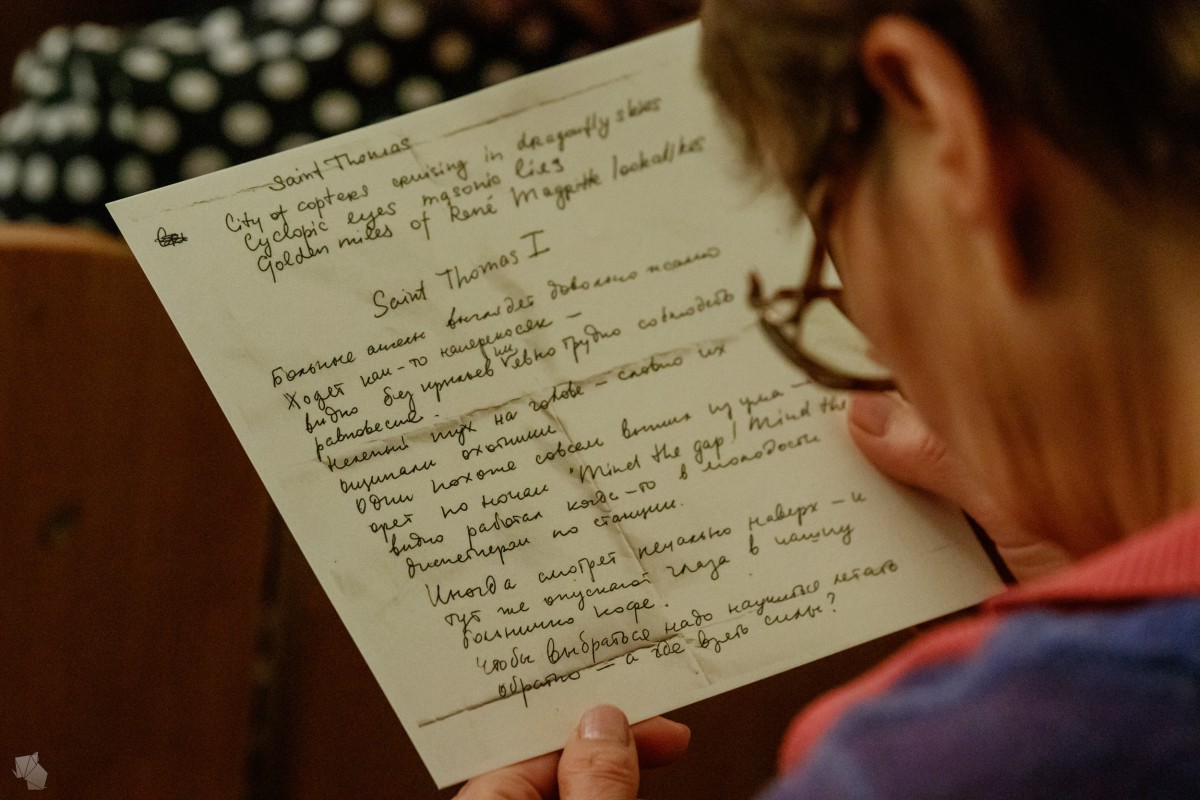 Saint Thomas
City of copters cruising in dragonfly skies
Cyclopic eyes masonic lies
Golden miles of René Magritte lookalikes
Saint Thomas I
Больные ангелы выглядят довольно жалко
Ходят как-то наперекосяк —
видно без крыльев им ✓евно трудно соблюдать
равновесие.
Нелепый пух на голове – словно их
ощипали охотники
Один похоже совсем выжил из ума —
орёт по ночам "Mind the gap! Mind the
видно работал когда-то в молодости
диспетчером по станции.
Иногда смотрят печально наверх – и
тут же опускают глаза в чашку
больнично кофе.
Чтобы выбраться надо научиться летать
обратно — а где взять силы?